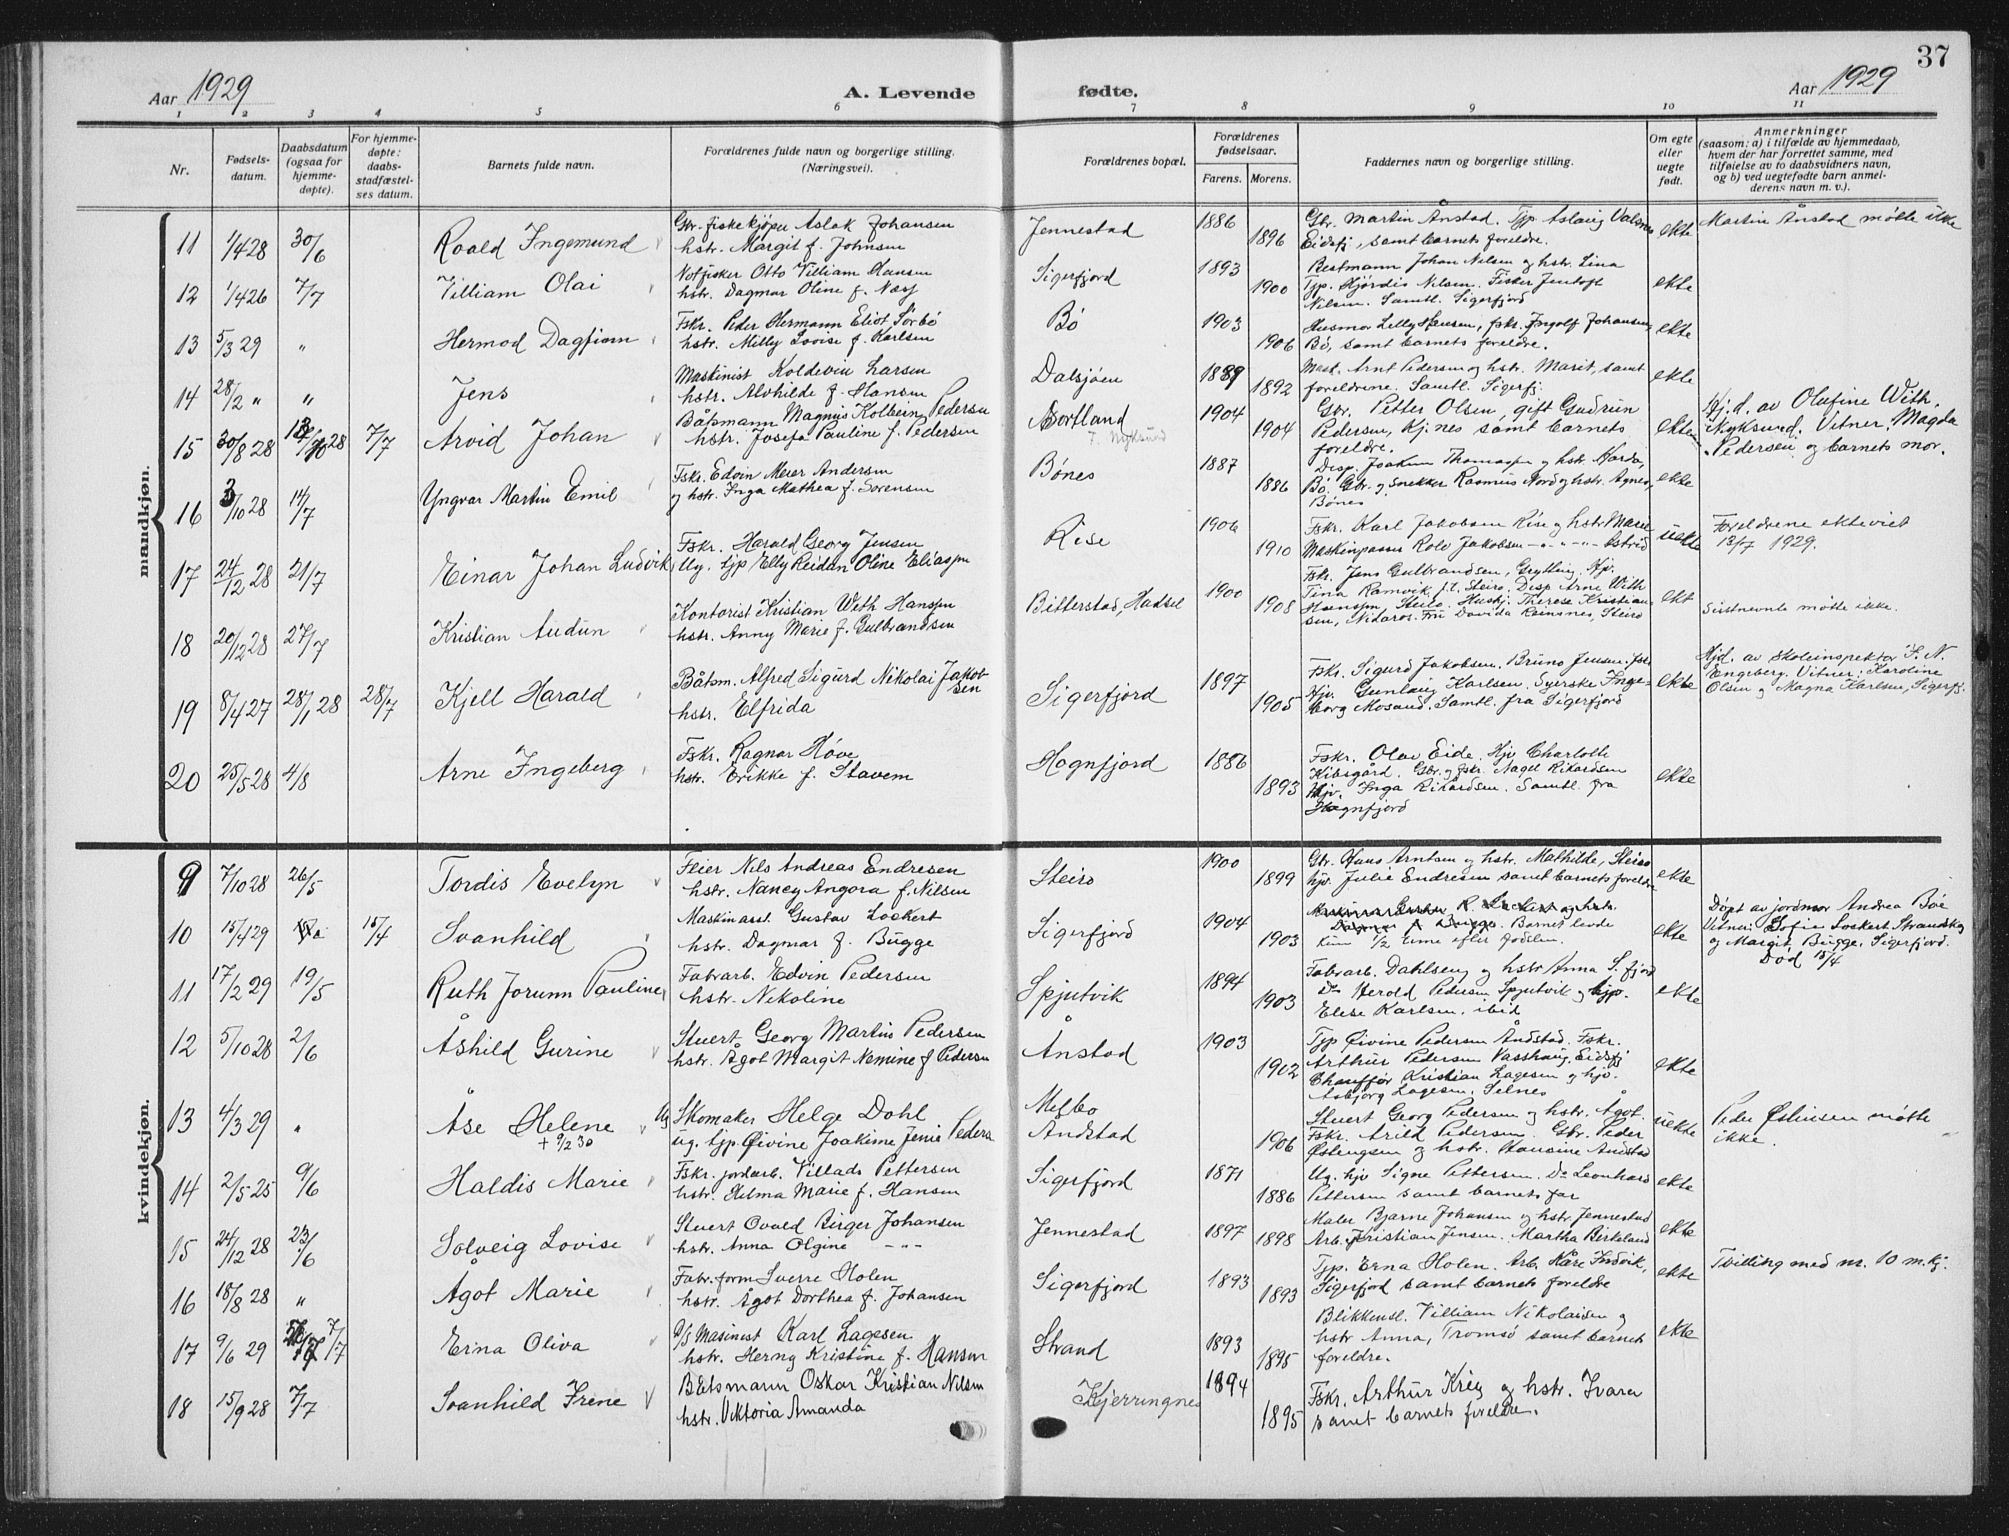 37
Aar 1929
A. Levende fødte.
Aar 1929
1 2 3 4 5 6 7 8 9 10 11
Nr.
Fødsels-
datum.
Daabsdatum
(ogsaa for
hjemme-
døpte).
For hjemme-
døpte:
daabs-
stadfæstel-
ses datum.
Barnets fulde navn.
Forældrenes fulde navn og borgerlige stilling.
(Næringsvei).
Forældrenes bopæl.
Forældrenes
fødselsaar.
Farens. Morens.
Faddernes navn og borgerlige stilling.
Om egte
eller
uegte
født.
Anmerkninger
(saasom: a) i tilfælde av hjemmedaab,
hvem der har forrettet samme, med
tilføielse av to daabsvidners navn,
og b) ved uegtefødte barn anmel-
derens navn m. v.).
mandkjøn.
11 1/4 28 30/6 Roald Ingemund
Gbr. fiskekjøper Aslak Johansen
hstr. Margit f. Johnsen
Jennestad 1886 1896
Gbr. Martin Ånstad. Tjp. Aslaug
Eidsfj, samt barnets foreldre.
ekte
Martin Ånstad møtte ikke
12 1/4 26 7/7 Villiam Olai
Notfisker Otto Villiam Hansen
hstr. Dagmar Oline f. Næss
Sigerfjord 1893 1900
Bestmann Johan Nilsen og hstr. Lina
Tjp. Hjørdis Nilsen. Fisker Jentoft
Nilsen. Samtl. Sigerfjord
ekte
13 5/3 29 " Hermod Dagfinn
Fskr. Peder Hermann Eliot Sørbø
hstr. Milly Lovise f. Karlsen
Bø 1903 1906
Husmor Lilly Hansen, fskr. Ingolf Johansen
Bø, samt barnets foreldre.
ekte
14 28/2 " " Jens
Maskinist Koldevin Larsen
hstr. Alvhilde f. Hansen
Dalsjøen 1889 1892
Mask. Arnt Pedersen og hstr. Marit, samt
foreldrene. Samtl. Sigerfj.
ekte
15 30/8 28 7/7 Arvid Johan
Båtsmann Magnus Kolbein Pedersen
hstr. Josefa Pauline f. Pedersen
Sortland
f. Nyksund
1904 1904
Gbr. Petter Olsen, gift Gudrun
Pedersen, Kj.nes samt barnets
foreldre.
ekte
Hj.d. av Olufine With.
Nyksund. Vitner, Magda
Pedersen og barnets mor.
16 3/10 28 14/7 Yngvar Martin Emil
Fskr. Edvin Meier Andersen
og hstr. Inga Mathea f. Sørensen
Bønes 1887 1886
Disp. Joakim Thomassen og hstr. Harda,
Bø. Gbr. og Snekker Rasmus Nord og hstr. Agnes,
Bønes
ekte
17 24/12 28 21/7 Einar Johan Ludvik
Fskr. Harald Georg Jensen
Ug. tjp Elly Reidun Oline Eliassen
Rise 1906 1910
Fskr. Karl Jakobsen Rise og hstr Marie
Maskinpasser Rolv Jakobsen - " - " - Astrid
uekte
Foreldrene ekteviet
13/7 1929.
18 20/12 28 27/7 Kristian Audun
Kontorist Kristian With Hanssen
hstr. Anny Marie f. Gulbrandsen
Bitterstad, Hadsel 1900 1908
Fskr. Jens Gulbrandsen, Grytting, Hjv.
Tina Ramvik f.t. Steiro. Disp Arne With
Hanssen, Steilo. Huskj. Therese Kristian-
sen, Nidaros. Fru Davida Reinsnes, Steiro
ekt
Sistnevnte møtte ikke.
19 8/4 27 28/1 28 28/7 Kjell Harald
Båtsm. Alfred Sigurd Nikolai Jakob-
sen
hstr. Elfrida
Sigerfjord 1897 1905
Fskr. Sigurd Jakobsen. Bruno Jensen. fskr
Hjv. Gunlaug Karlsen. Syerske Inge-
borg Mosand. Samtl. fra Sigerfjord
ekte
Hjd. av skoleinspektør S. N.
Engeberg. Vitner: Karoline
Olsen og Magna Karlsen, Sigerfj.
20 25/5 28 4/8 Arne Ingeberg
Fskr. Ragnar Høve
hstr. Erikke f. Stavem
Hognfjord 1886 1893
Fskr. Olav Eide. Hjv Charlotte
Kibsgård. Gbr. og fskr. Nagel Rikardsen
Hjv. Inga Rikardsen. Samtl. fra
Hognfjord
ekte
kvindekjøn.
9 7/10 28 26/5 Tordis Evelyn
Feier Nils Andreas Endresen
hstr. Nancy Angora f. Nilsen
Steiro 1900 1899
Gbr. Hans Arntsen og hstr. Mathilde, Steiro
hjv. Julie Endresen samt barnets foreldre
ekte
10 15/4 29 15/4 Svanhild
Maskinasst. Gustav Lockert
hstr. Dagmar f. Bugge
Sigerfjord 1904 1903
Barnet levde
kun 1/2 time efter fødslen.
ekte
Døpt av jordmor Andrea Bøe
Vitner: Sofie Lockert Strandskog
og Margit Bugge, Sigerfjord.
Død 15/4
11 17/2 29 19/5 Ruth Jorunn Pauline
Fabrarb. Edvin Pedersen
hstr. Nikoline
Spjutvik 1894 1903
Fabrarb. Dahlseng og hstr Anna S.fjord
Do Herold Pedersen Spjutvik og hjv.
Elise Karlsen. ibid
ekte
12 5/10 28 2/6 Åshild Gurine
Stuert Georg Martin Pedersen
hstr. Ågot Margit Nemine f Pedersen
Ånstad 1903 1902
Tjp Øivine Pedersen Åndstad. Fskr.
Arthur Pedersen Vasshaug, Eidsfj
Chauffør Kristian Lagesen og hjv.
Asbjørg Lagesen, Selnes
ekte
13 4/3 29 " Åse Helene
+ 9/2 30
Ug Skomaker Helge Dahl
ug. tjp. Øivine Joakime Jenie Pedersen
Melbo
Åndstad
1906
Stuert Georg Pedersen og hstr. Ågot.
Fskr. Arild Pedersen. Gbr. Peder
Østengsen og hstr. Hansine Åndstad
uekte
møtte
ikke.
14 2/5 25 9/6 Haldis Marie
Fskr. jordarb. Villads Pettersen
hstr. Hilma Marie f. Hansen
Sigerfjord 1871 1886
Ug. hjv Signe Pettersen. Do Leonhard
Pettersen samt barnets far
ekte
15 24/12 28 23/6 Solveig Lovise
Stuert Ovald Birger Johansen
hstr. Anna Olgine - " -
Jennestad 1897 1898
Maler Bjarne Johansen og hstr Jennestad
Arb. Kristian Jensen. Martha Birkeland
ekte
16 18/8 28 " Ågot Marie
Fabr.form Sverre Holen
hstr. Ågot Dorthea f. Johansen
Sigerfjord 1893 1893
Tjp. Erna Holen. Arb. Kåre Indvik,
Sigerfjord samt barnets foreldre
ekte
Tvilling med nr. 10 m.kj.
17 9/6 29 7/7 Erna Oliva
D/S Masinist Karl Lagesen
hstr. Herny Kristine f. Hansen
Strand 1893 1895
Blikkensl. Villiam Nikolaisen og
hstr Anna, Tromsø samt barnets
foreldre.
ekte
18 15/9 28 7/7 Svanhild Irene
Båtsmann Oskar Kristian Nilsen
hstr. Viktoria Amanda
Kjerringnes 1894 1895
Fskr. Arthur Krey og hstr. Ivara
samt barnets foreldre.